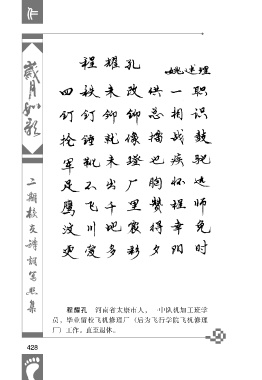 岁月如歌
二期校友诗词写照集
程耀孔
魏述理
四秩未改供一职
钉钉铆铆总相识
抡锤就像擂战鼓
军靴未蹬也疾驰
足不出厂胸怀远
鹰飞千里赞程师
汶川地震得幸免
更爱多彩夕阳时
程耀孔 河南省太康市人，一中队机加工班学
员，毕业留校飞机修理厂（后为飞行学院飞机修理
厂）工作。直至退休。
428